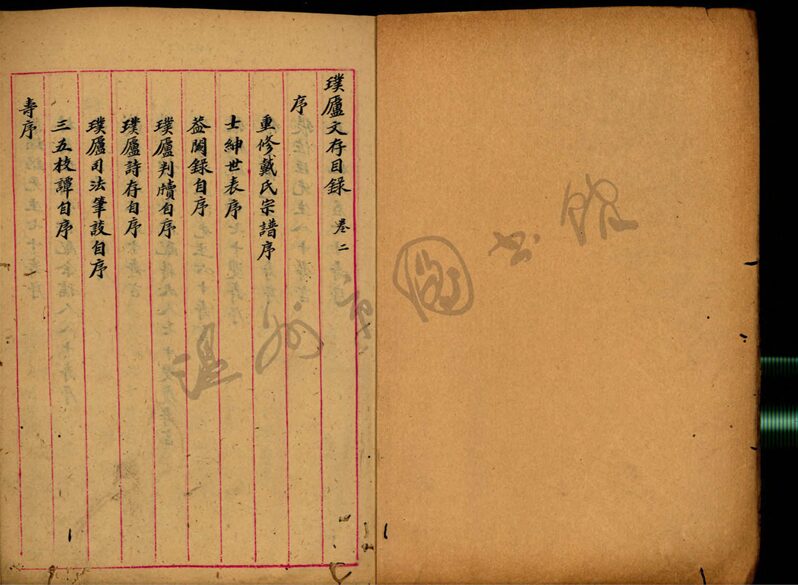 璞廬文存目錄 卷二
序
重修戴氏宗譜序
士紳世表序
葢闕錄自序
璞廬判牘自序
璞廬詩存自序
璞廬司法筆談自序
三五枝譚自序
壽序
温州市图书馆